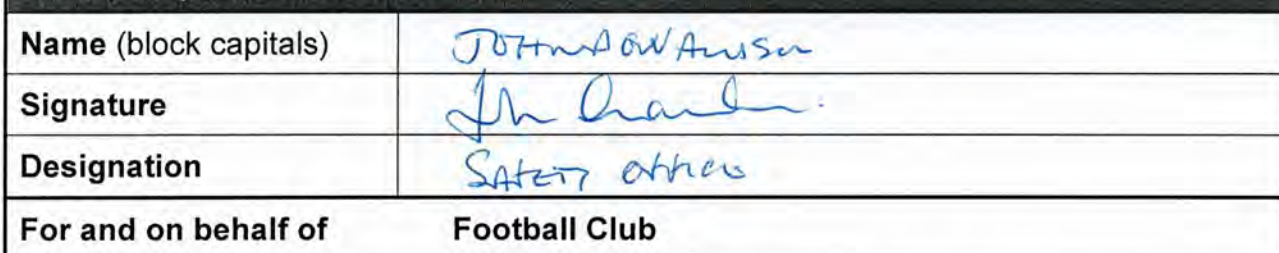 Name (block capitals) JOHN
Signature
Designation SAFETY Officer
For and on behalf of Football Club